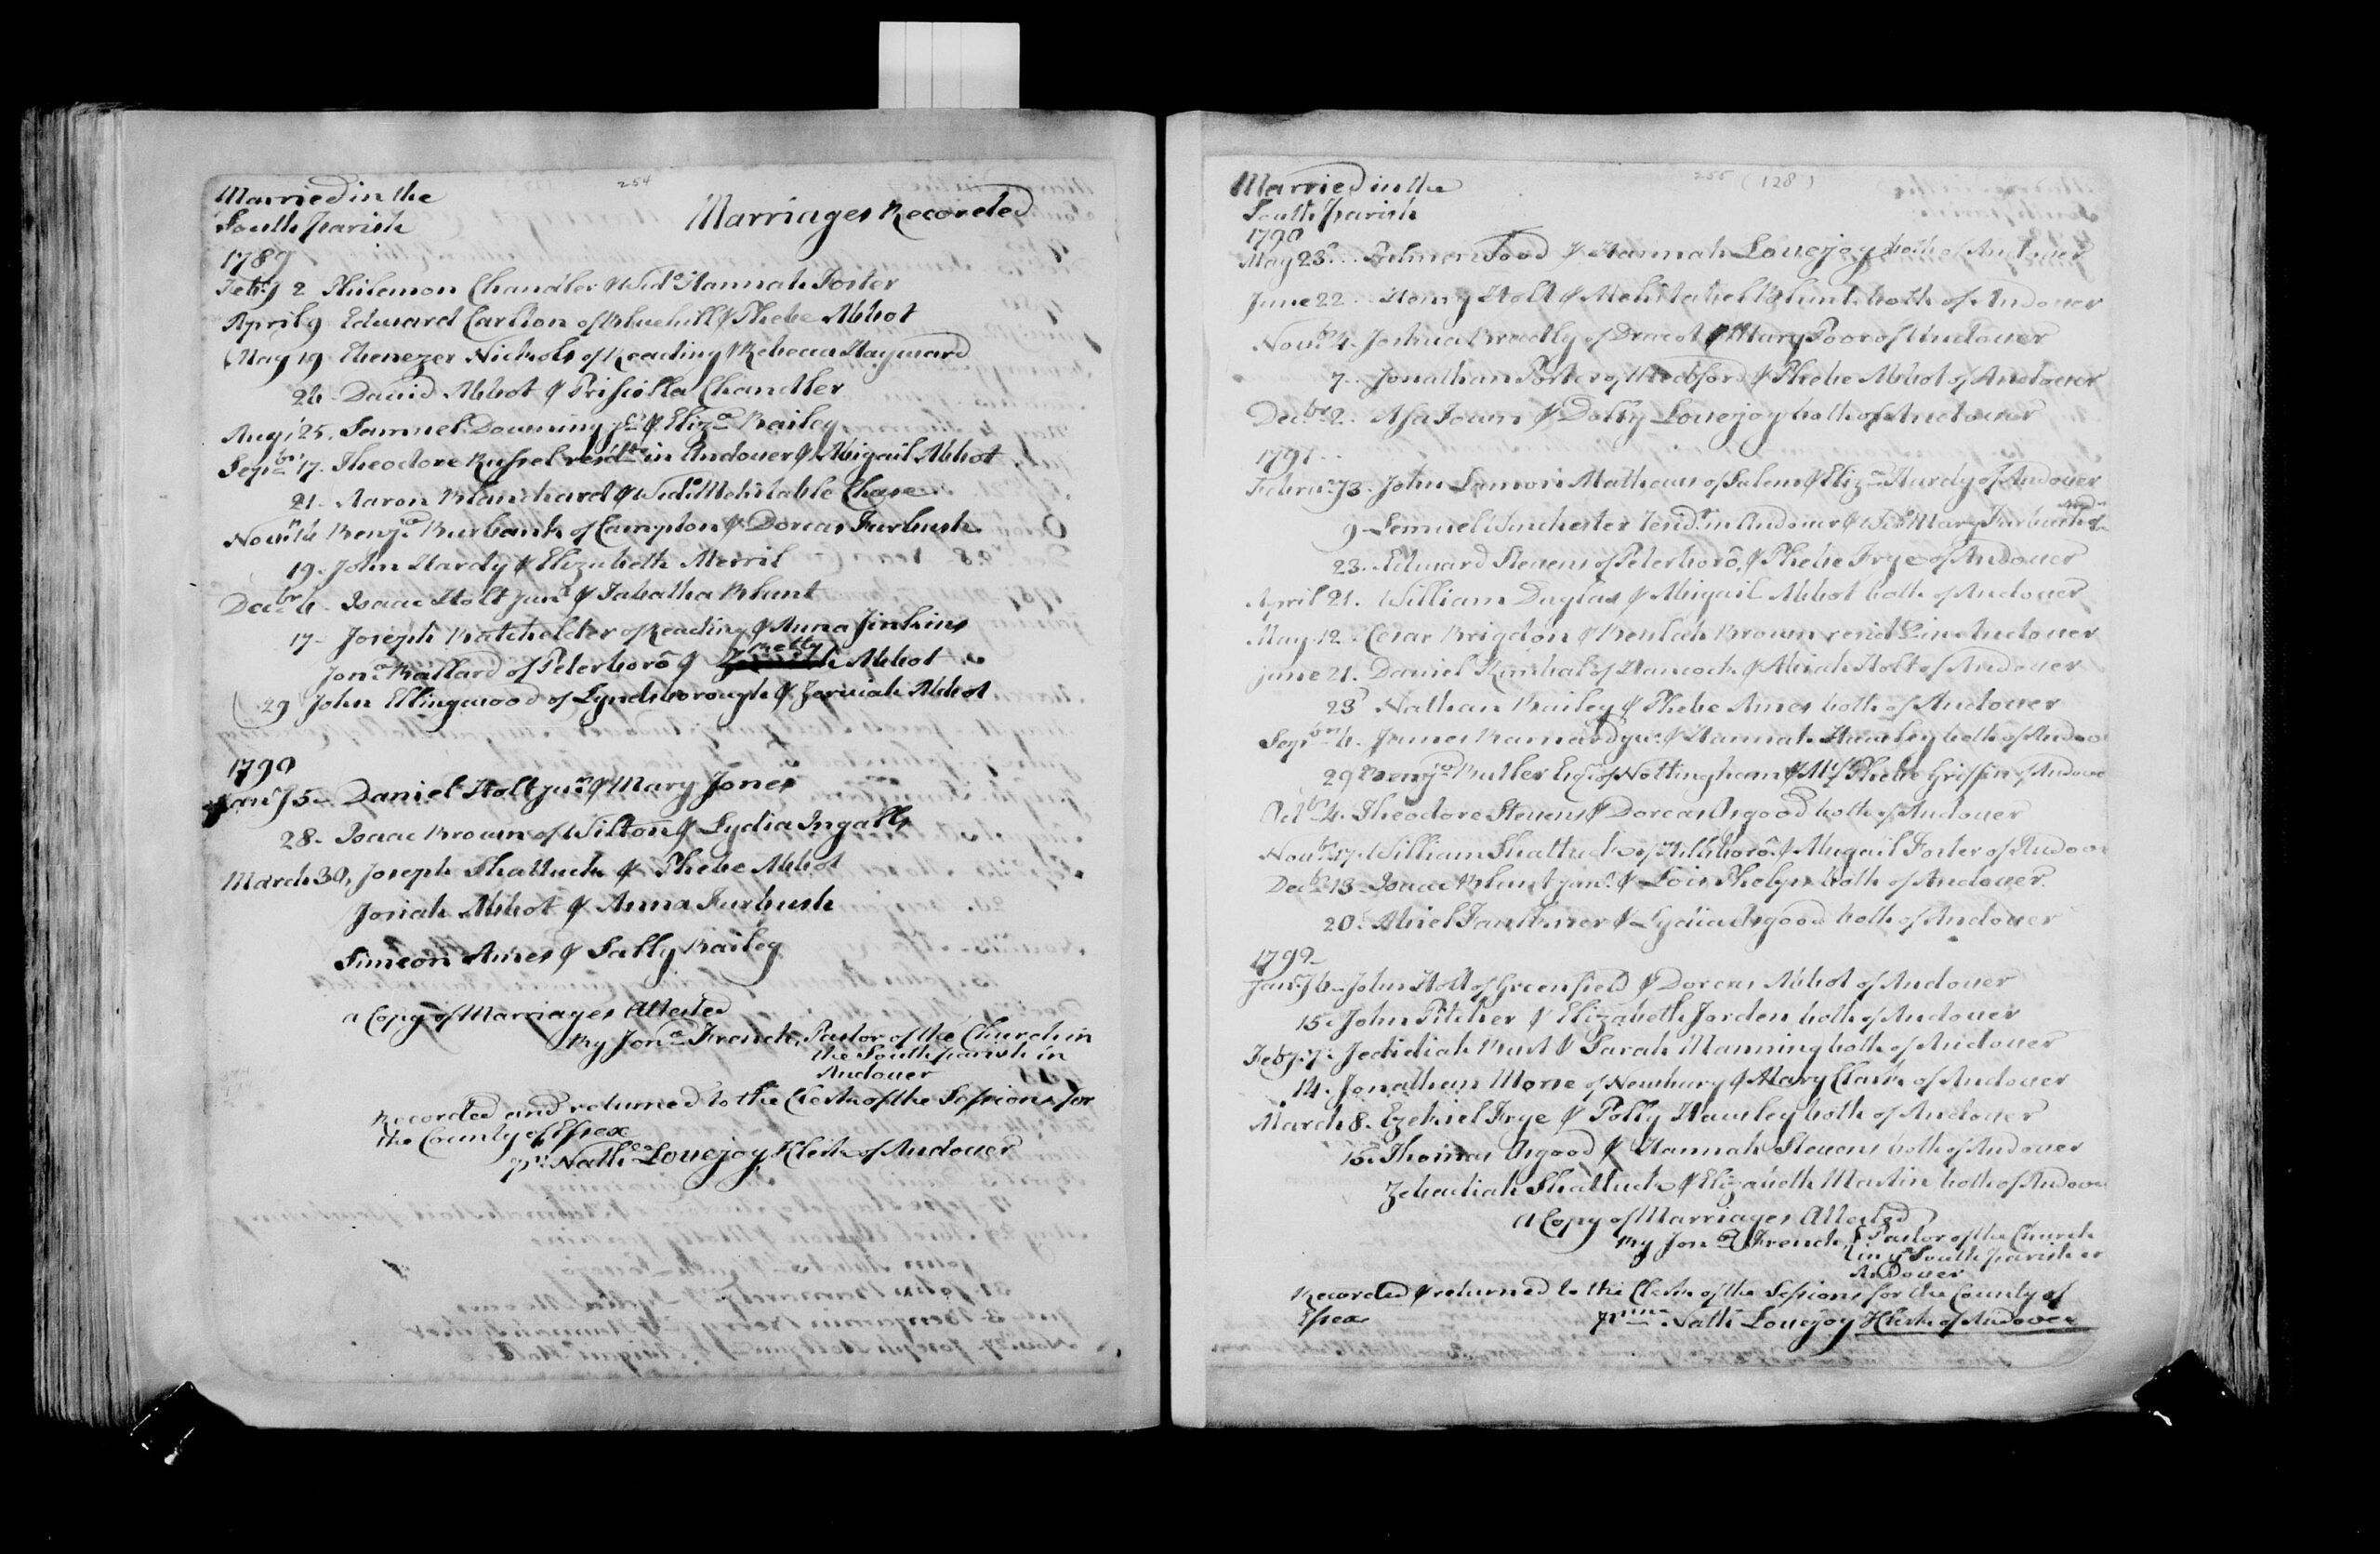 254
Married in the
South Parish
Marriages Recorded
1789
Febry 2 Philemon Chandler & Wido Hannah Foster
April 9 Edward Carlton of Bluehill & Phebe Abbot
May 19 Ebenezer Nichols of Reading & Rebecca Hayward
26 David Abbot & Priscilla Chandler
Augt 25. Samuel Downing jr & Eliza Bailey
Sepbr 17. Theodore Russel resdt in Andover & Abigail Abbot
21. Aaron Blanchard & Wido Mehitable Chase
Novr 16 Benja Burbank of Campton & Dorcas Furbush
19. John Hardy & Elizabeth Merril
Decbr 6. Isaac Holt junr & Tabatha Blunt
17. Joseph Batchelder of Reading & Anna Jinkins
Betty
Jona Ballard of Peterboro & Abbot
29 John Ellingwood of Lyndeborough & Zerviah Abbot
1790
Janry 5. Daniel Holt junr & Mary Jones
28. Isaac Brown of Wilton & Lydia Ingalls
March 30, Joseph Shattuck & Phebe Abbot
Josiah Abbot & Anna Furbush
Simeon Ames & Sally Bailey
a Copy of Marriages Attested
By Jona French, Pastor of the Church in
the South Parish in
Andover
Recorded and returned to the Clerk of the Sessions for
the County of Essex
pr Nathl Lovejoy Klerk of Andover
255 (128)
Married in the
South Parish
1790
May 23. Food & Hannah Lovejoy both of Andover
June 22. Henry Holt & Mehitabel Blunt both of Andover
Novr 4. Joshua Bradly of Dracot & Mary Poor of Andover
7. Jonathan Porter of & Phebe Abbot of Andover
Decbr 2. Asa Town & Dolly Lovejoy both of Andover
1791
Februry 3. John Lamon Mathews of Salem & Eliza Hardy of Andover
9. Samuel Winchester resdt in Andover & Wido Mary Furbush of
23. Edward Stevens of Peterboro, & Phebe Frye of Andover
April 21. William Duglas & Abigail Abbot both of Andover
May 12. Cesar Brigdon & Beulah Brown residt in Andover
June 21. Daniel Kimbal of Hancock & Abiah Holt of Andover
23 Nathan Bailey & Phebe Ames both of Andover
Sepbr 6. James Barnard jur & Hannah Hawley both of Andov
29 Benja Butler Esqr of Nottingham & Ms Phebe Griffin of Andove
Octbr 4. Theodore Stevens & Dorcas Osgood both of Andover
Novbr 17. William Shattuck of Hilsboro & Abigail Foster of Andov
Decbr 13. Isaac Blunt junr & Lois Phelps both of Andover
20. Abiel Faulkner & Lydia Osgood both of Andover
1792
Janry 6. John Holt of Greenfield & Dorcas Abbot of Andover
15. John Pitcher & Elizabeth Jorden both of Andover
Feby 7. Jedidiah Burt & Sarah Manning both of Andover
14. Jonathan Morse of Newbury & Mary Clark of Andover
March 8. Ezekiel Frye & Polly Hawley both of Andover
15. Thomas Osgood & Hannah Stevens both of Andover
Zebadiah Shattuck & Elizabeth Martin both of Andove
a Copy of Marriages Attested
By Jona French, Pastor of the Church
in ye South Parish
Andover
Recorded & returned to the Clerk of the Sessions for the County of
Essex
Nathl Lovejoy Klerk of Andover